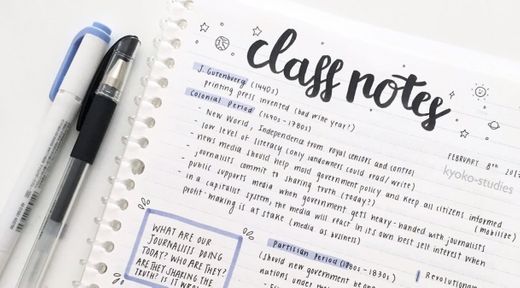 class notes
FEBRUARY 8th 201
kyoko-studies
J. Gutenberg (1440s)
printing press invented (bad wine year?)
Colonial Period (1640s - 1780s)
- New World, Independence from royal censors and control
low level of literacy (only landowners could read/write)
- news media should help mold government policy and keep all citizens informed
(mobilize)
- journalists commit to sharing truth (today?)
public supports media when government gets heavy-handed with journalists
- in a capitalist system, the media will react in its own best self interest when
profit-making is at stake (media as business)
WHAT ARE OUR
JOURNALISTS DOING
TODAY? WHO ARE THEY?
ARE THEY SHARING THE
TRUTH? IS IT
Partisan Period (1800s - 1830s)
(should new government
nations under
Revolutionary